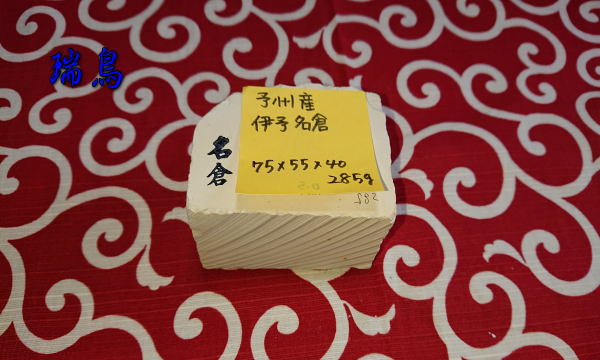 瑞鳥
予州産
伊予名倉
75×55×40
285g
名倉
285